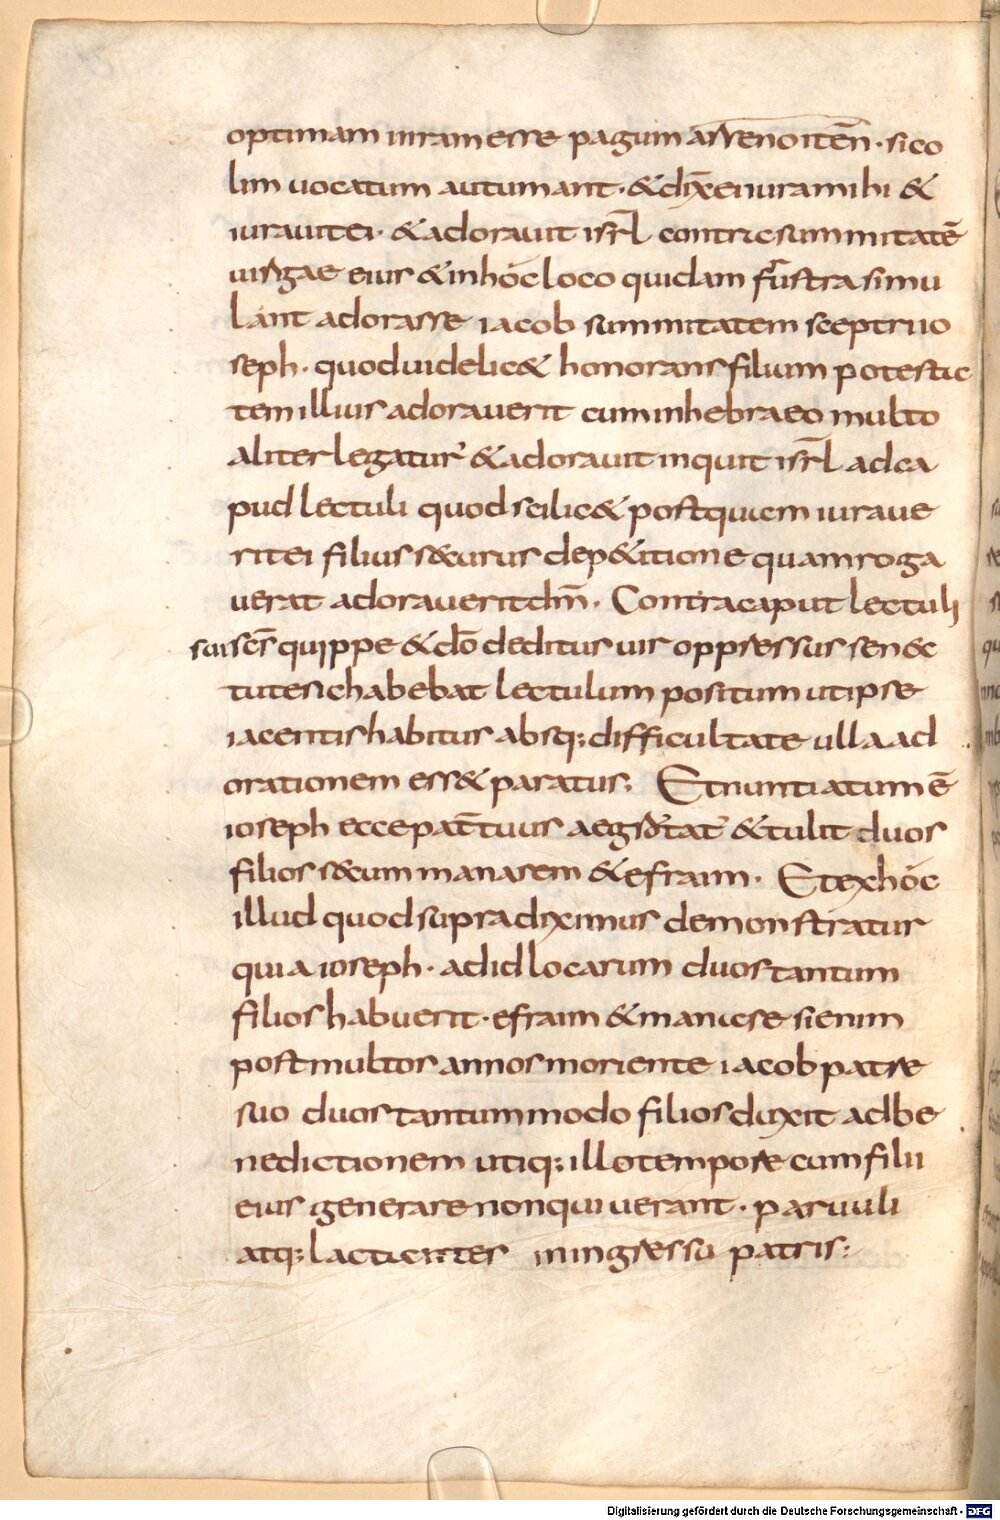 optimam iuram esse pagum arsenoitēn · sic o
lim uocatum autumant · & dix̄ ei iura mihi &
iurauit ei · & adorauit isr̄l contra summitatē
uirgae eius & in hoc loco quidam frustra simu
lant adorasse iacob summitatem sceptri io
seph · quod uidelic& honorans filium potesta
tem illius adorauerit cum in hebraeo multo
aliter legatur & adorauit inquit isr̄l ad ca
pud lectuli quod scilic& postquam iuraue
rit ei filius securus de p&itione quam roga
uerat adorauerit dm̄ · Contra caput lectuli
sui scs̄ quippe & dō deditus uir oppressus senec
tute sic habebat lectulum positum ut ipse
iacentis habitus absq; difficultate ulla ad
orationem ess& paratus; Et nuntiatum ē
ioseph ecce pat̄ tuus aegrotat & tulit duos
filios secum manasem & efraim · Et ex hoc
illud quod supra diximus demonstratur
quia ioseph · ad id locarum duos tantum
filios habuerit · efraim & manase si enim
post multos annos moriente iacob patre
suo duos tantummodo filios duxit ad be
nedictionem utiq; illo tempore cum filii
eius generare non quiuerant · paruuli
atq; lactentes in ingressu patris:
Digitalisierung gefördert durch die Deutsche Forschungsgemeinschaft - DFG